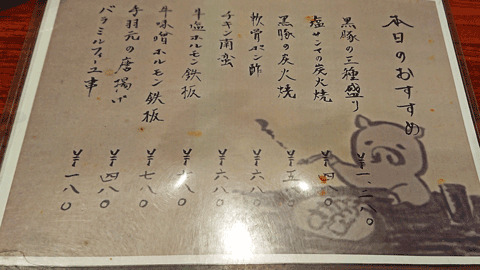 本日のおすすめ
黒豚の三種盛り ¥一、二八〇
塩サンマの炭火焼 ¥四八〇
黒豚の炭火焼 ¥五
軟骨ポン酢 ¥六八〇
チキン南蛮 ¥六八〇
牛塩ホルモン鉄板 八〇
牛味噌ホルモン鉄板 ¥七八〇
手羽元の唐揚げ ¥四八〇
バラミルフィーユ串 ¥一八〇